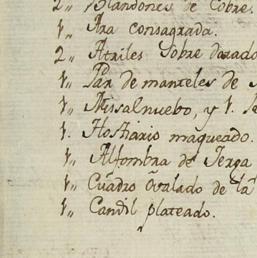 2,, Blandones de Cobre.
1,, Ara consagrada.
2,, Atriles Sobre dorado
1,, Par de manteles de
1,, Missal nuebo, y 1.
1. Hostiario maqueado.
1,, Alfombra de Jerga
1,, Cuadro Ovalado de la
1,, Candil plateado.